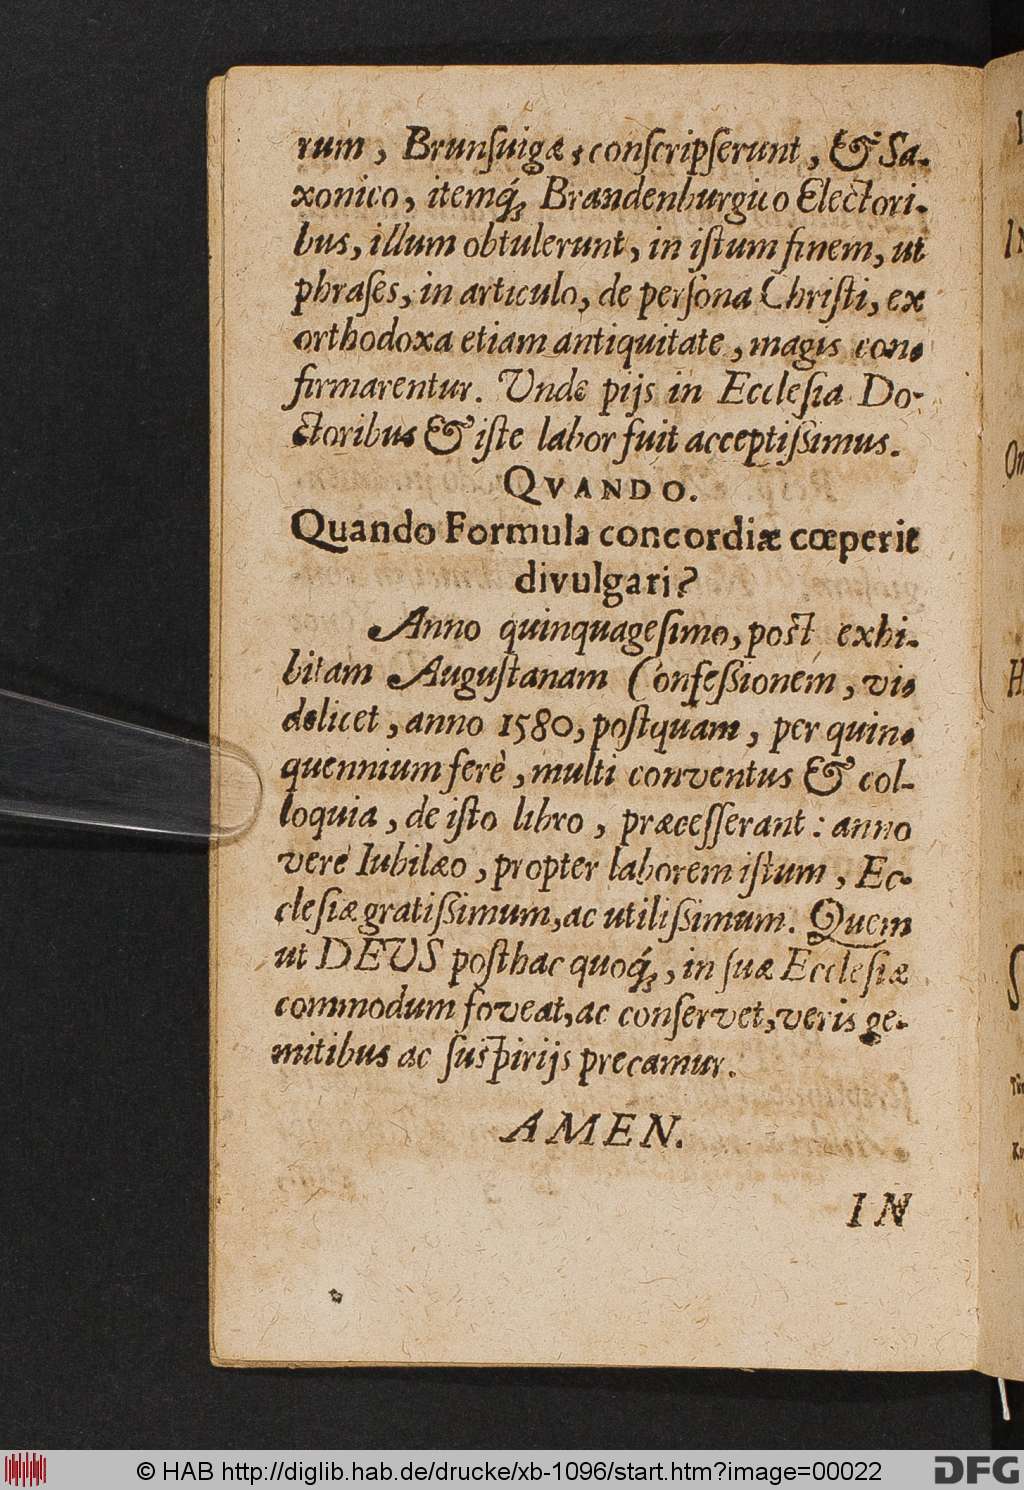 rum, Brunſuigæ, conſcripſerunt, & Sa-
xonico, itemq́; Brandenburgico Electori-
bus, illum obtulerunt, in iſtum finem, ut
phraſes, in articulo, de perſona Chriſti, ex
orthodoxa etiam antiquitate, magis con-
firmarentur. Unde pijs in Eccleſia Do-
ctoribus & iſte labor fuit acceptiſſimus.
QVANDO.
Quando Formula concordiæ cœperit
divulgari?
Anno quinquageſimo, poſt exhi-
bitam Auguſtanam Confeſſionem, vi-
delicet, anno 1580, poſtquam, per quin-
quennium ferè, multi conventus & col-
loquia, de iſto libro, præceſſerant: anno
verè Iubilæo, propter laborem iſtum, Ec-
cleſiæ gratiſſimum, ac utiliſſimum. Quem
ut DEUS poſthac quoq́;, in ſuæ Eccleſiæ
commodum foveat, ac conſervet, veris ge-
mitibus ac ſuſpirijs precamur.
AMEN.
IN
© HAB http://diglib.hab.de/drucke/xb-1096/start.htm?image=00022
DFG